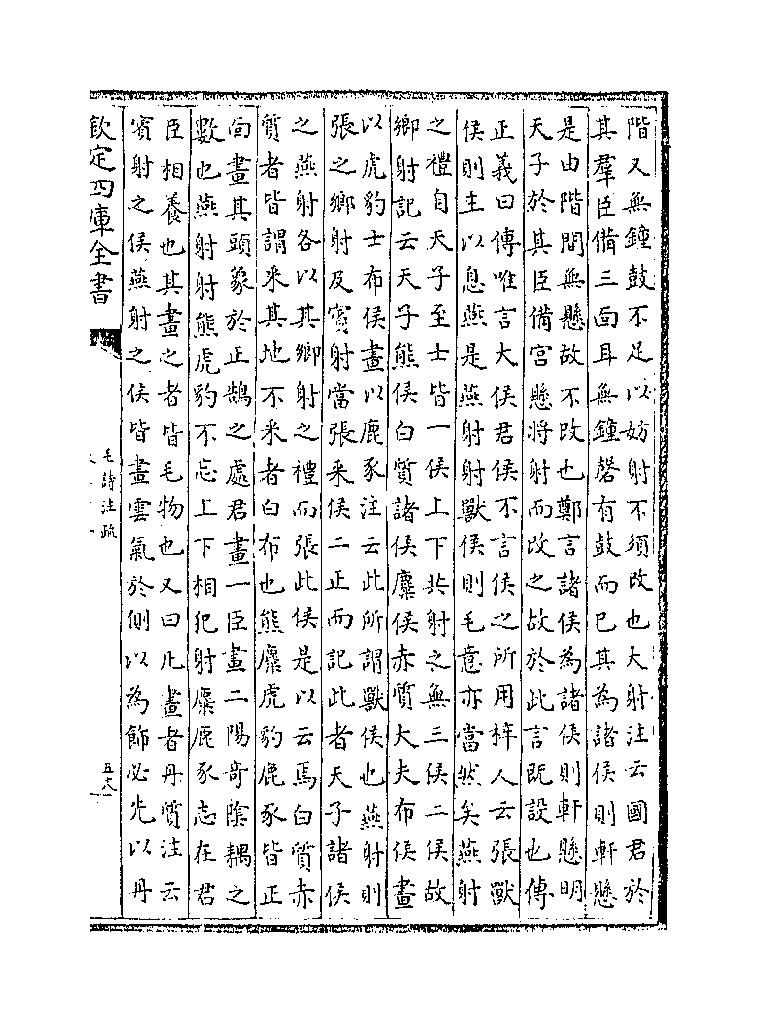 階又無鐘鼓不足以妨射不須改也大射注云國君於
其羣臣備三面耳無鐘磬有鼓而已其為諸侯則軒懸
是由階間無懸故不改也鄭言諸侯為諸侯則軒懸明
天子於其臣備宮懸將射而改之故於此言既設也傳
正義曰傳唯言大侯君侯不言侯之所用梓人云張獸
侯則王以息燕是燕射射獸侯則毛意亦當然矣燕射
之禮自天子至士皆一侯上下共射之無三侯二侯故
鄉射記云天子熊侯白質諸侯麋侯赤質大夫布侯畫
以虎豹士布侯畫以鹿豕注云此所謂獸侯也燕射則
張之鄉射及賓射當張采侯二正而記此者天子諸侯
之燕射各以其鄉射之禮而張此侯是以云焉白質赤
質者皆謂采其地不采者白布也熊麋虎豹鹿豕皆正
面畫其頭象於正鵠之處君畫一臣畫二陽奇陰耦之
數也燕射射熊虎豹不忘上下相犯射麋鹿豕志在君
臣相養也其畫之者皆毛物也又曰凡畫者丹質注云
賓射之侯燕射之侯皆畫雲氣於側以為飾必先以丹
欽定四庫全書
毛詩注疏